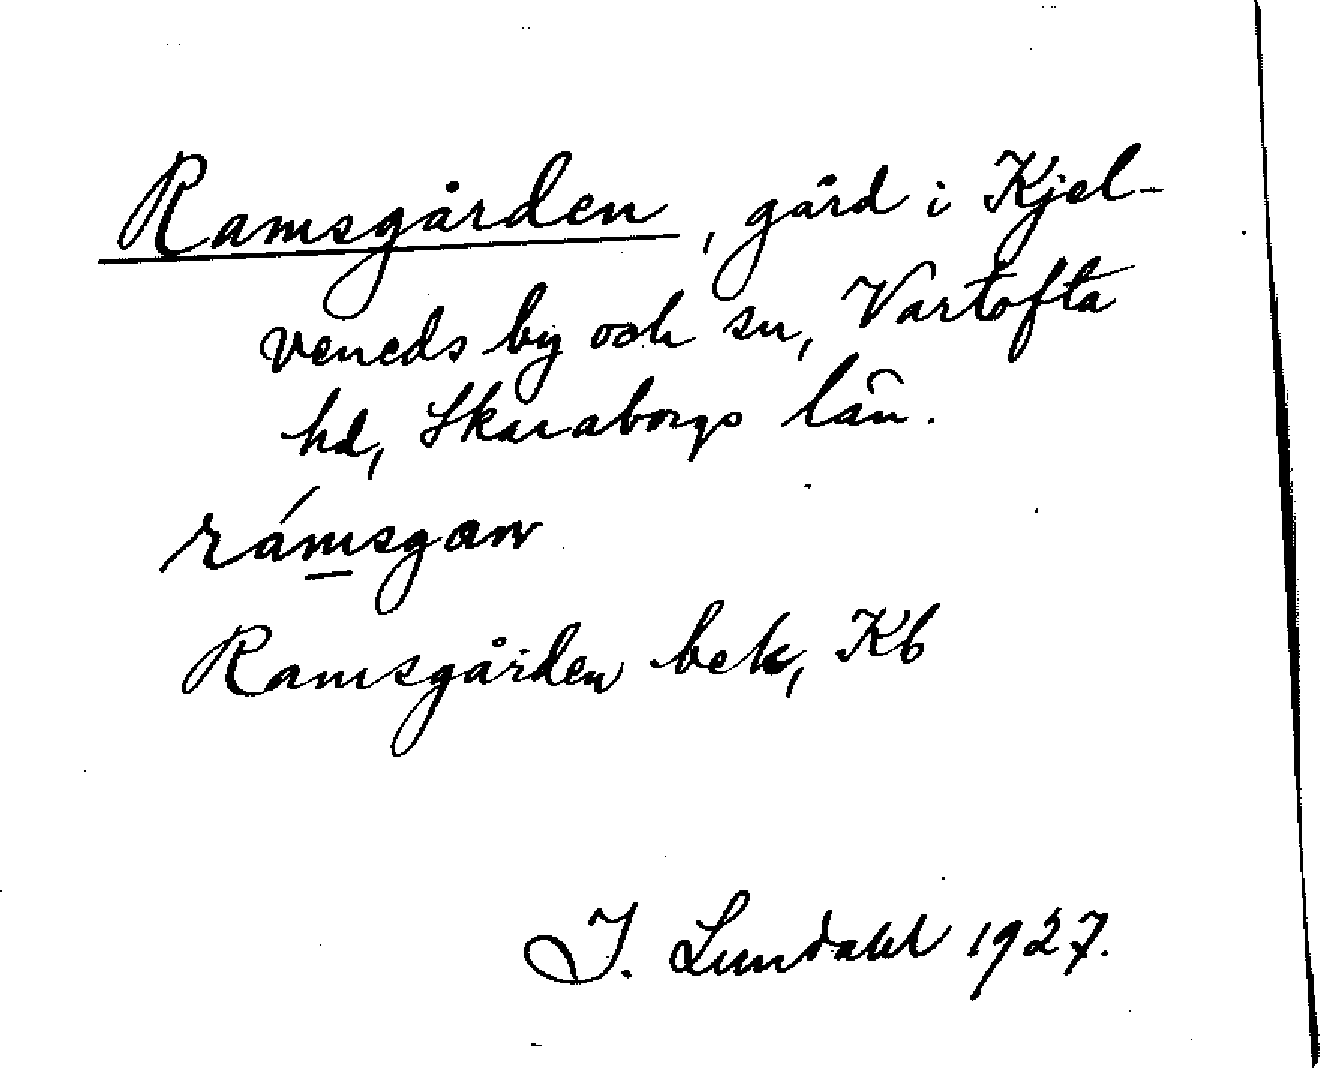 Ramsgården, gård i Kjel-
veneds by och sn, Vartofta
hd, Skaraborgs län.
rámsgaṇ
Ramsgården bek, Kb
I. Lundahl 1927.